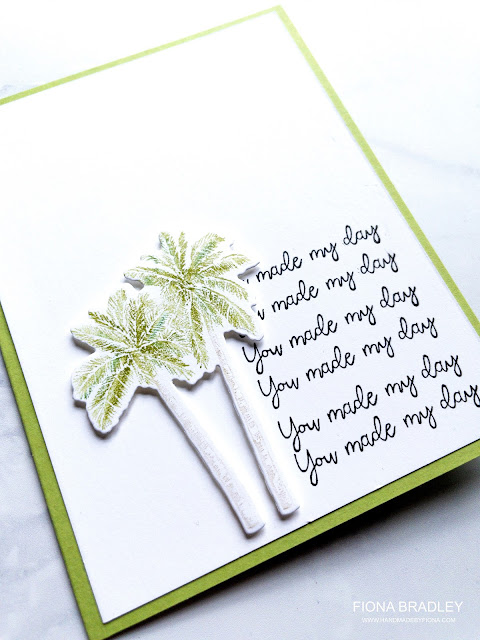 made my day
made my day
You made my day
You made my day
You made my day
You made my day
FIONA BRADLEY
WWW.HANDMADEBYFIONA.COM